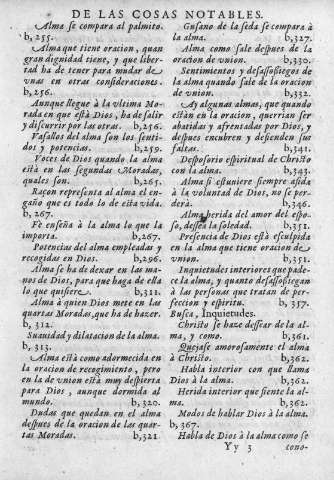 DE LAS COSAS NOTABLES.
Alma se compara al palmito.
b, 255.
Alma que tiene oracion, quan
gran dignidad tiene, y que liber-
tad ha de tener para mudar de
vnas en otras consideraciones.
b, 256.
Aunque llegue à la vltima Mo-
rada en que està Dios, ha de salir
y discurrir por las otras. b, 256.
Vasallos del alma son los senti-
dos y potencias. b, 259.
Voces de Dios quando la alma
està en las segundas Moradas,
quales son. b, 265.
Razon representa al alma el en-
gaño que es todo lo de esta vida.
b, 267.
Fè enseña à la alma lo que la
importa. b, 267.
Potencias del alma empleadas y
recogidas en Dios. b, 296.
Alma se ha de dexar en las ma-
nos de Dios, para que haga de ella
lo que quisiere. b, 311.
Alma à quien Dios mete en las
quartas Moradas, que ha de hazer.
b, 312.
Suauidad y dilatacion de la alma.
b, 313.
Alma està como adormecida en
la oracion de recogimiento, pero
en la de vnion està muy despierta
para Dios, aunque dormida al
mundo. b, 320.
Dudas que quedan en el alma
despues de la oracion de las quar-
tas Moradas. b, 321
Gusano de la seda se compara à
la alma. b, 327.
Alma como sale despues de la
oracion de vnion. b, 330.
Sentimientos y desassossiegos de
la alma quando sale de la oracion
de vnion. b, 332.
Ay algunas almas, que quando
estàn en la oracion, querrian ser
abatidas y afrentadas por Dios, y
despues encubren y defienden sus
faltas. b, 341.
Desposorio espiritual de Christo
con la alma. b, 343.
Alma si estuuiere siempre asida
à la voluntad de Dios, no se per-
derà. b, 346.
Alma herida del amor del espo-
so, dessea la soledad. b, 351.
Presencia de Dios està esculpida
en la alma que tiene oracion de
vnion. b, 351.
Inquietudes interiores que pade-
ce la alma, y quanto desassossiegan
à las personas que tratan de per-
feccion y espiritu. b, 357.
Busca, Inquietudes.
Christo se haze dessear de la al-
ma, y como. b, 361.
Quejase amorosamente el alma
à Christo. b, 362.
Habla interior con que llama
Dios à la alma. b, 362.
Herida interior que siente la al-
ma. b, 362.
Modos de hablar Dios à la alma.
b, 367.
Habla de Dios à la alma como se
Yy 3 cono-